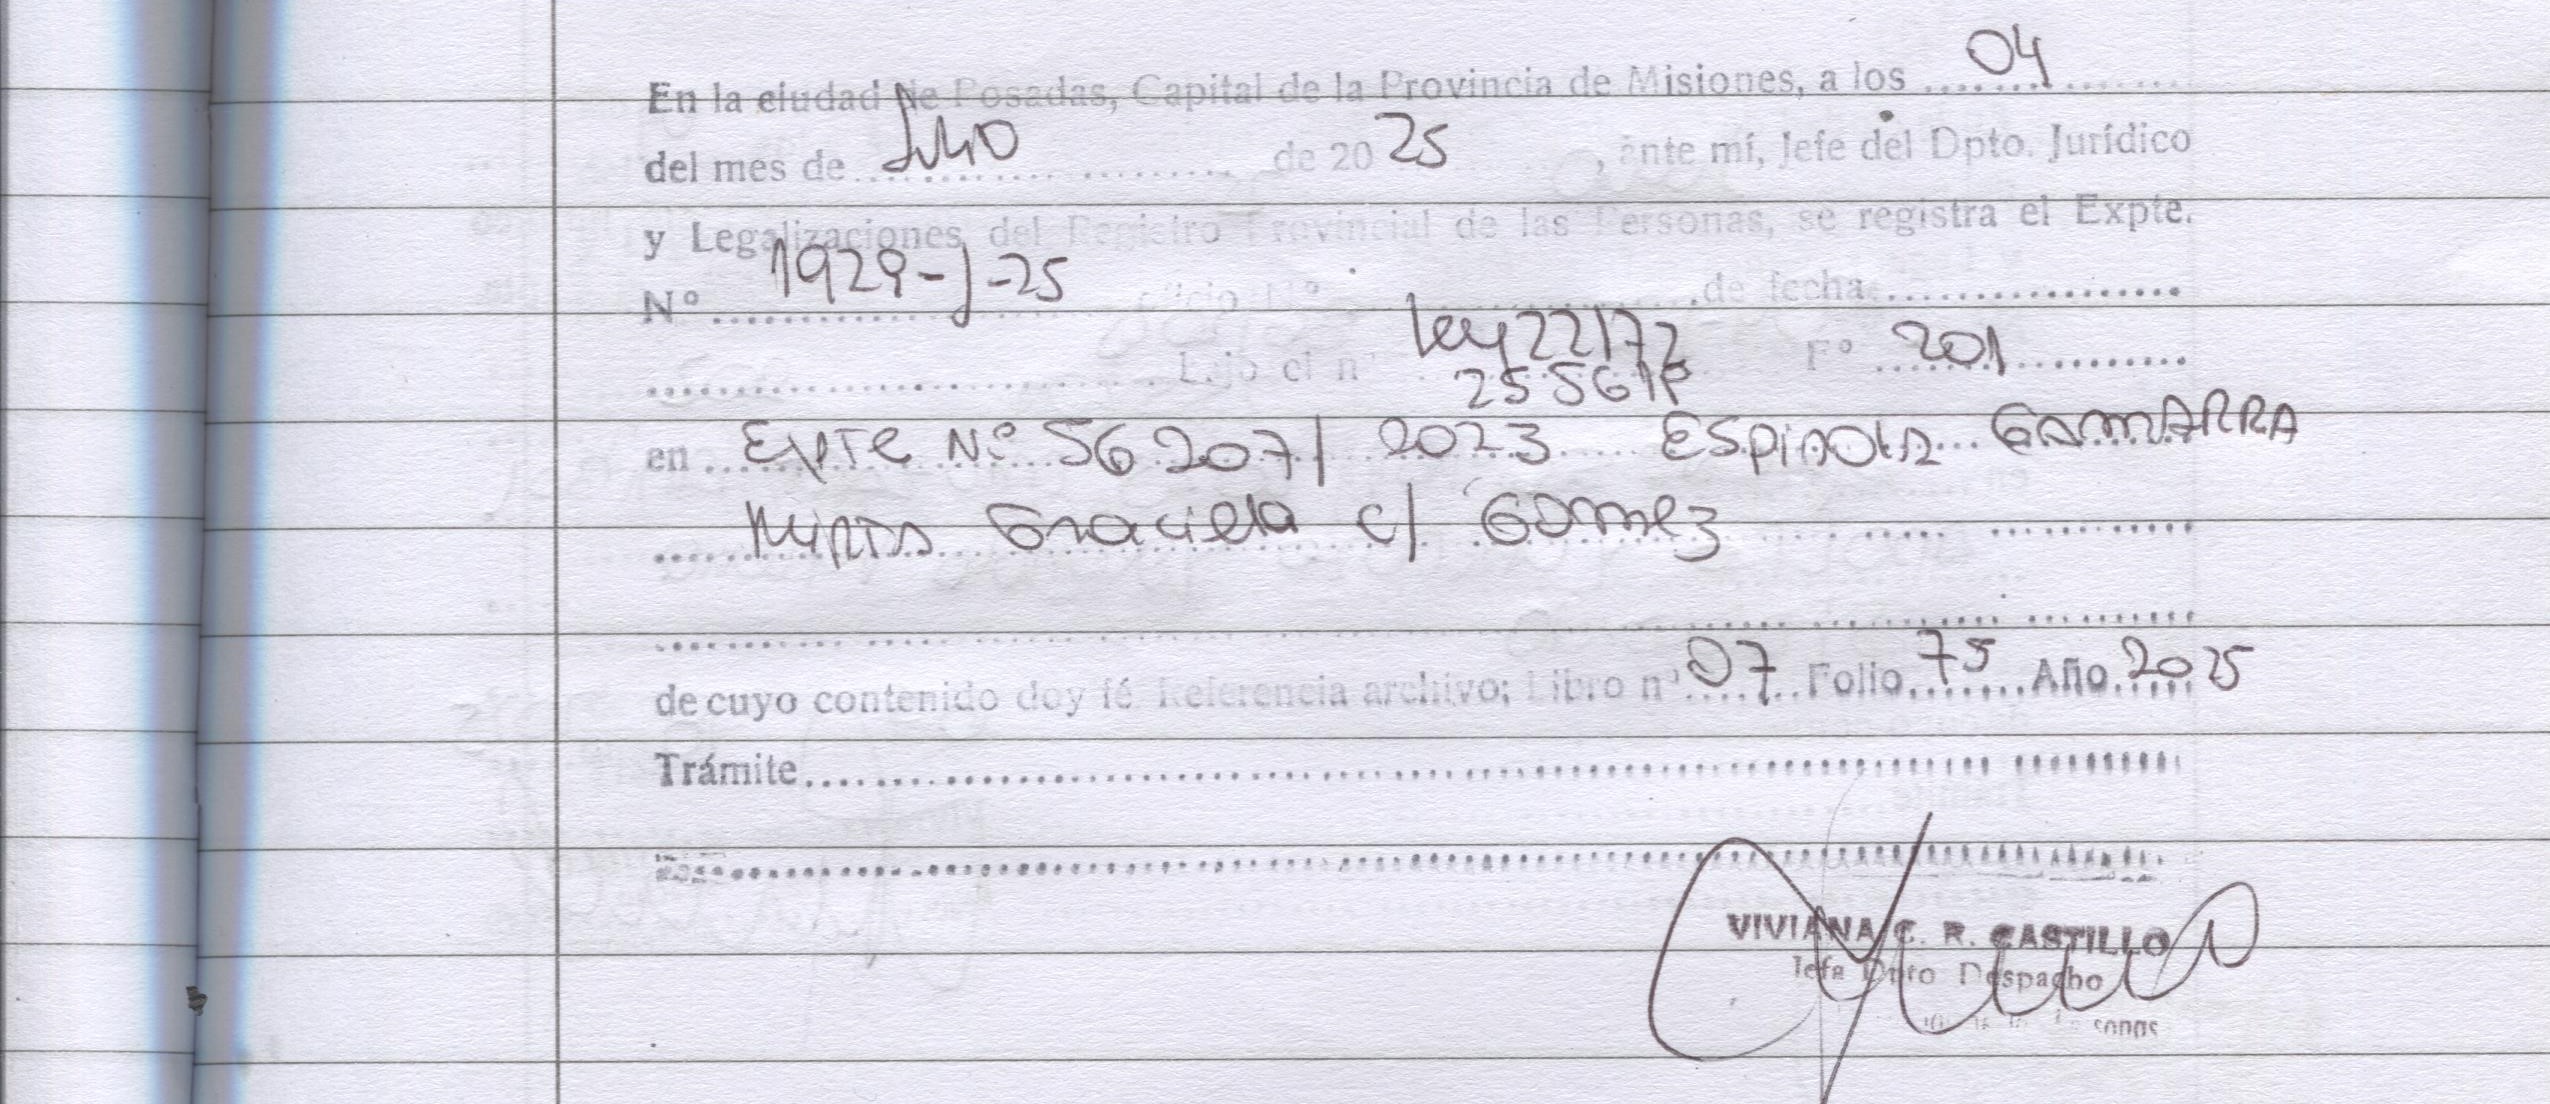 En la ciudad de Posadas, Capital de la Provincia de Misiones, a los 04
del mes de Julio de 20 25, ante mí, Jefe del Dpto. Jurídico
y Legalizaciones del Registro Provincial de las Personas, se registra el Expte.
Nº 1929-J-25 oficio Nº de fecha
Bajo el nº Ley 22172 Fº 201
25561P
en Expte Nº 56207/2023 Espinola GAMARRA
Graciela c/ Gomez
de cuyo contenido doy fé Referencia archivo; Libro nº 07 Folio 75 Año 2025
Trámite
VIVIANA C. R. CASTILLO
Jefa Dpto Despacho